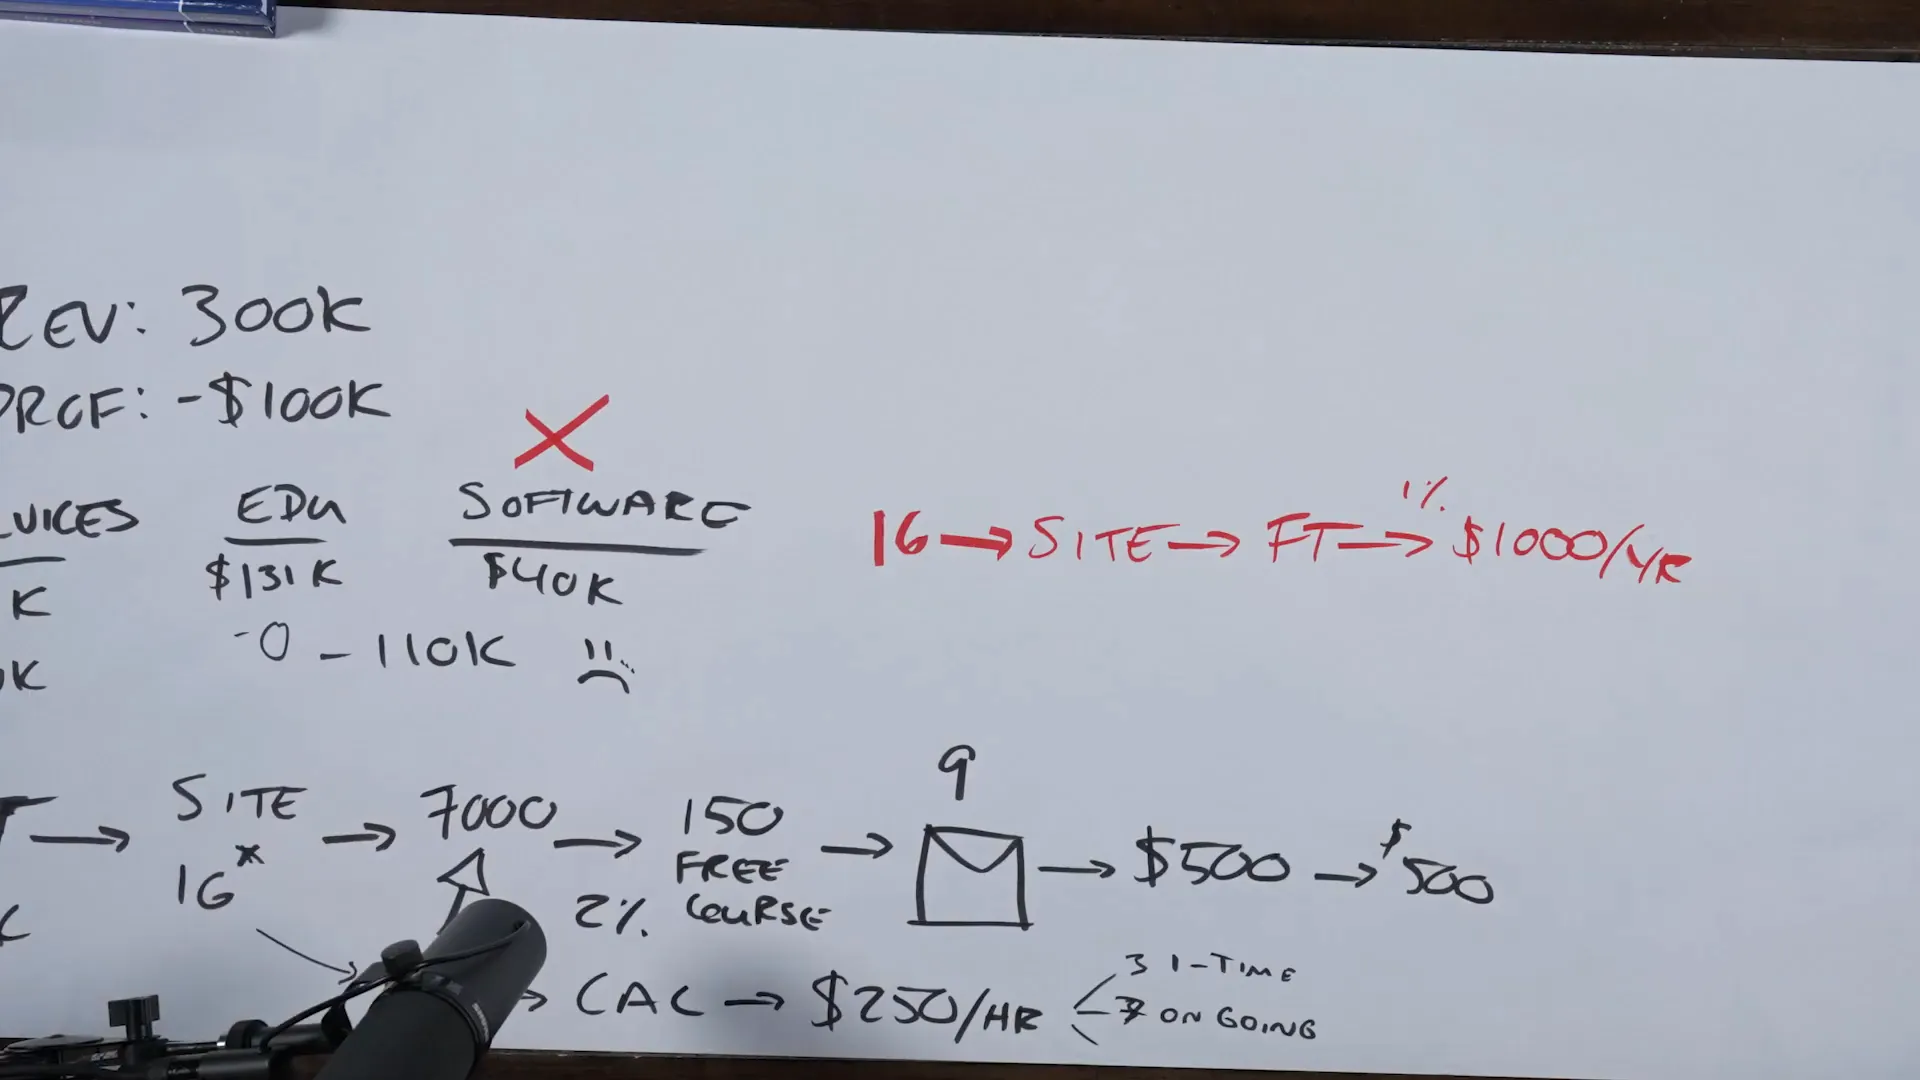 REV: 300K
PROF: -$100K
EDU
SOFTWARE
$131K
$40K
K
-0 - 110K
K
16 → SITE → FT → $1000/YR
1%
SITE → 7000 → 150 → → $500 → $500
16*
FREE
COURSE
2%
9
CAC → $250/HR
3 1-TIME
ON GOING